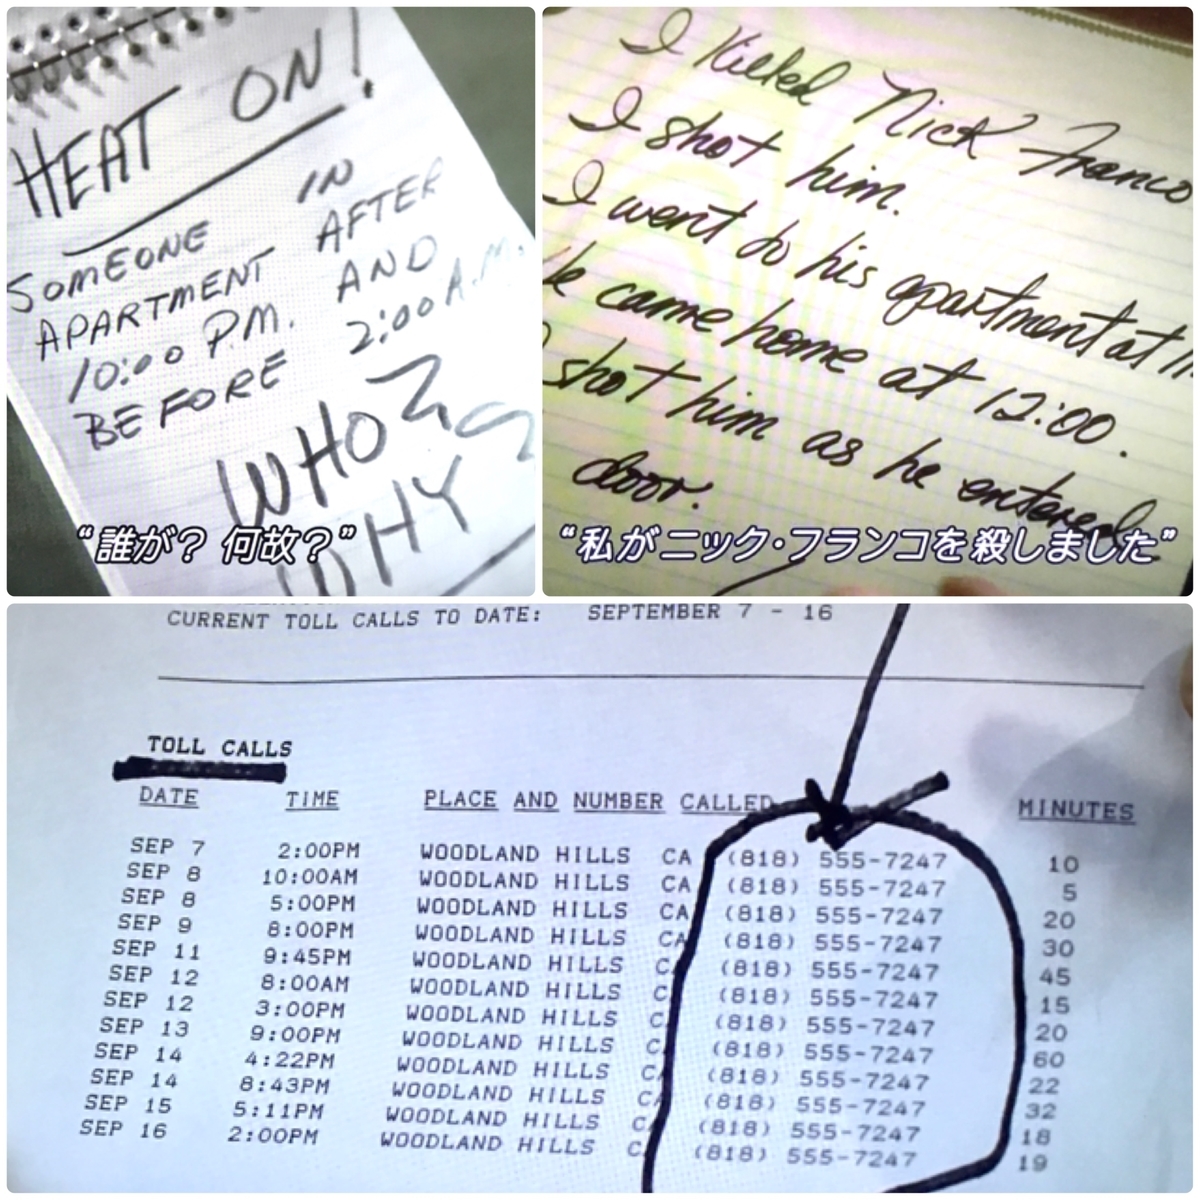 HEAT ON!
SOMEONE IN
APARTMENT AFTER
10:00 P.M. AND
BEFORE 2:00 A.M.
WHO?
WHY?
“誰が? 何故?”
I Killed Nick Franco
I shot him.
I went to his apartment at
came home at 12:00.
shot him as he entered
door.
“私がニック・フランコを殺しました”
CURRENT TOLL CALLS TO DATE: SEPTEMBER 7 - 16
TOLL CALLS
DATE TIME PLACE AND NUMBER CALLED MINUTES
SEP 7 2:00PM WOODLAND HILLS CA (818) 555-7247 10
SEP 8 10:00AM WOODLAND HILLS CA (818) 555-7247 5
SEP 8 5:00PM WOODLAND HILLS CA (818) 555-7247 20
SEP 9 8:00PM WOODLAND HILLS CA (818) 555-7247 30
SEP 11 9:45PM WOODLAND HILLS CA (818) 555-7247 45
SEP 12 8:00AM WOODLAND HILLS CA (818) 555-7247 15
SEP 12 3:00PM WOODLAND HILLS CA (818) 555-7247 20
SEP 13 9:00PM WOODLAND HILLS CA (818) 555-7247 60
SEP 14 4:22PM WOODLAND HILLS CA (818) 555-7247 22
SEP 14 8:43PM WOODLAND HILLS CA (818) 555-7247 32
SEP 15 5:11PM WOODLAND HILLS CA (818) 555-7247 18
SEP 16 2:00PM WOODLAND HILLS CA (818) 555-7247 19